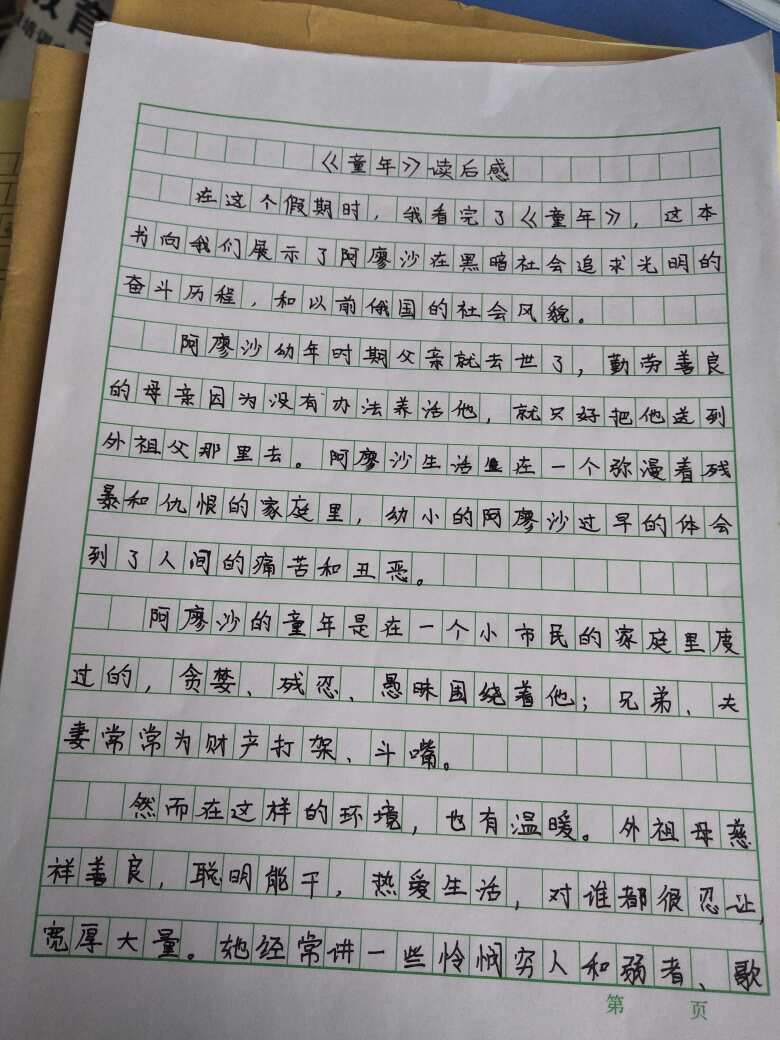 教育
《童年》读后感
在这个假期时，我看完了《童年》，这本
书向我们展示了阿廖沙在黑暗社会追求光明的
奋斗历程，和以前俄国的社会风貌。
阿廖沙幼年时期父亲就去世了，勤劳善良
的母亲因为没有办法养活他，就只好把他送到
外祖父那里去。阿廖沙生活在一个弥漫着残
暴和仇恨的家庭里，幼小的阿廖沙过早的体会
到了人间的痛苦和丑恶。
阿廖沙的童年是在一个小市民的家庭里度
过的，贪婪、残忍、愚昧围绕着他；兄弟、夫
妻常常为财产打架、斗嘴。
然而在这样的环境，也有温暖。外祖母慈
祥善良，聪明能干，热爱生活，对谁都很忍让，
宽厚大量。她经常讲一些怜悯穷人和弱者、歌
第 页